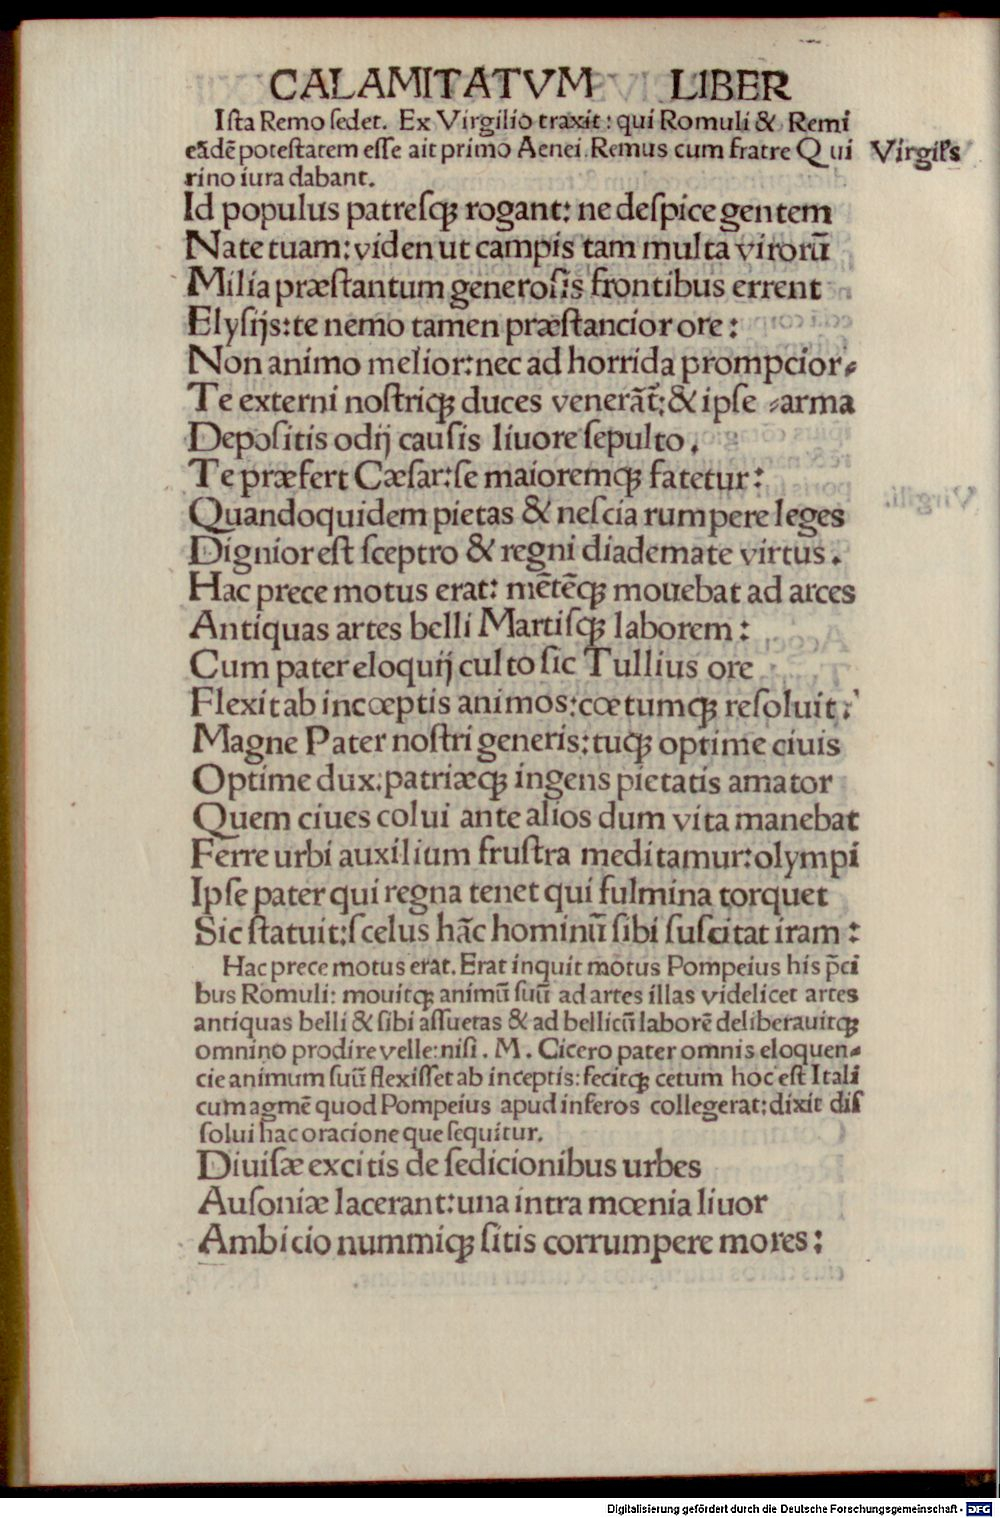 CALAMITATVM LIBER
Ista Remo sedet. Ex Virgilio traxit: qui Romuli & Remi
eãdẽ potestatem esse ait primo Aenei. Remus cum fratre Qui
Virgiľs
rino iura dabant.
Id populus patresqꝫ rogant: ne despice gentem
Nate tuam: viden ut campis tam multa virorũ
Milia præstantum generosis frontibus errent
Elysijs: te nemo tamen præstancior ore:
Non animo melior: nec ad horrida prompcior⸗
Te externi nostriqꝫ duces venerãt̃: & ipse ⸗arma
Depositis odij causis liuore sepulto.
Te præfert Cæsar: se maioremqꝫ fatetur:
Quandoquidem pietas & nescia rumpere leges
Dignior est sceptro & regni diademate virtus.
Hac prece motus erat: mẽtẽqꝫ mouebat ad arces
Antiquas artes belli Martisqꝫ laborem:
Cum pater eloquij culto sic Tullius ore
Flexit ab incœptis animos: cœtumqꝫ resoluit:
Magne Pater nostri generis: tuqꝫ optime ciuis
Optime dux: patriæqꝫ ingens pietatis amator
Quem ciues colui ante alios dum vita manebat
Ferre urbi auxilium frustra meditamur: olympi
Ipse pater qui regna tenet qui fulmina torquet
Sic statuit: scelus hãc hominũ sibi suscitat iram:
Hac prece motus erat. Erat inquit motus Pompeius his p̃ci
bus Romuli: mouitqꝫ animũ suũ ad artes illas videlicet artes
antiquas belli & sibi assuetas & ad bellicũ laborẽ deliberauitqꝫ
omnino prodire velle: nisi. M. Cicero pater omnis eloquen⸗
cie animum suũ flexisset ab inceptis: fecitqꝫ cetum hoc est Itali
cum agmẽ quod Pompeius apud inferos collegerat: dixit dis
solui hac oracione que sequitur.
Diuisæ excitis de sedicionibus urbes
Ausoniæ lacerant: una intra mœnia liuor
Ambicio nummiqꝫ sitis corrumpere mores:
Digitalisierung gefördert durch die Deutsche Forschungsgemeinschaft - DFG